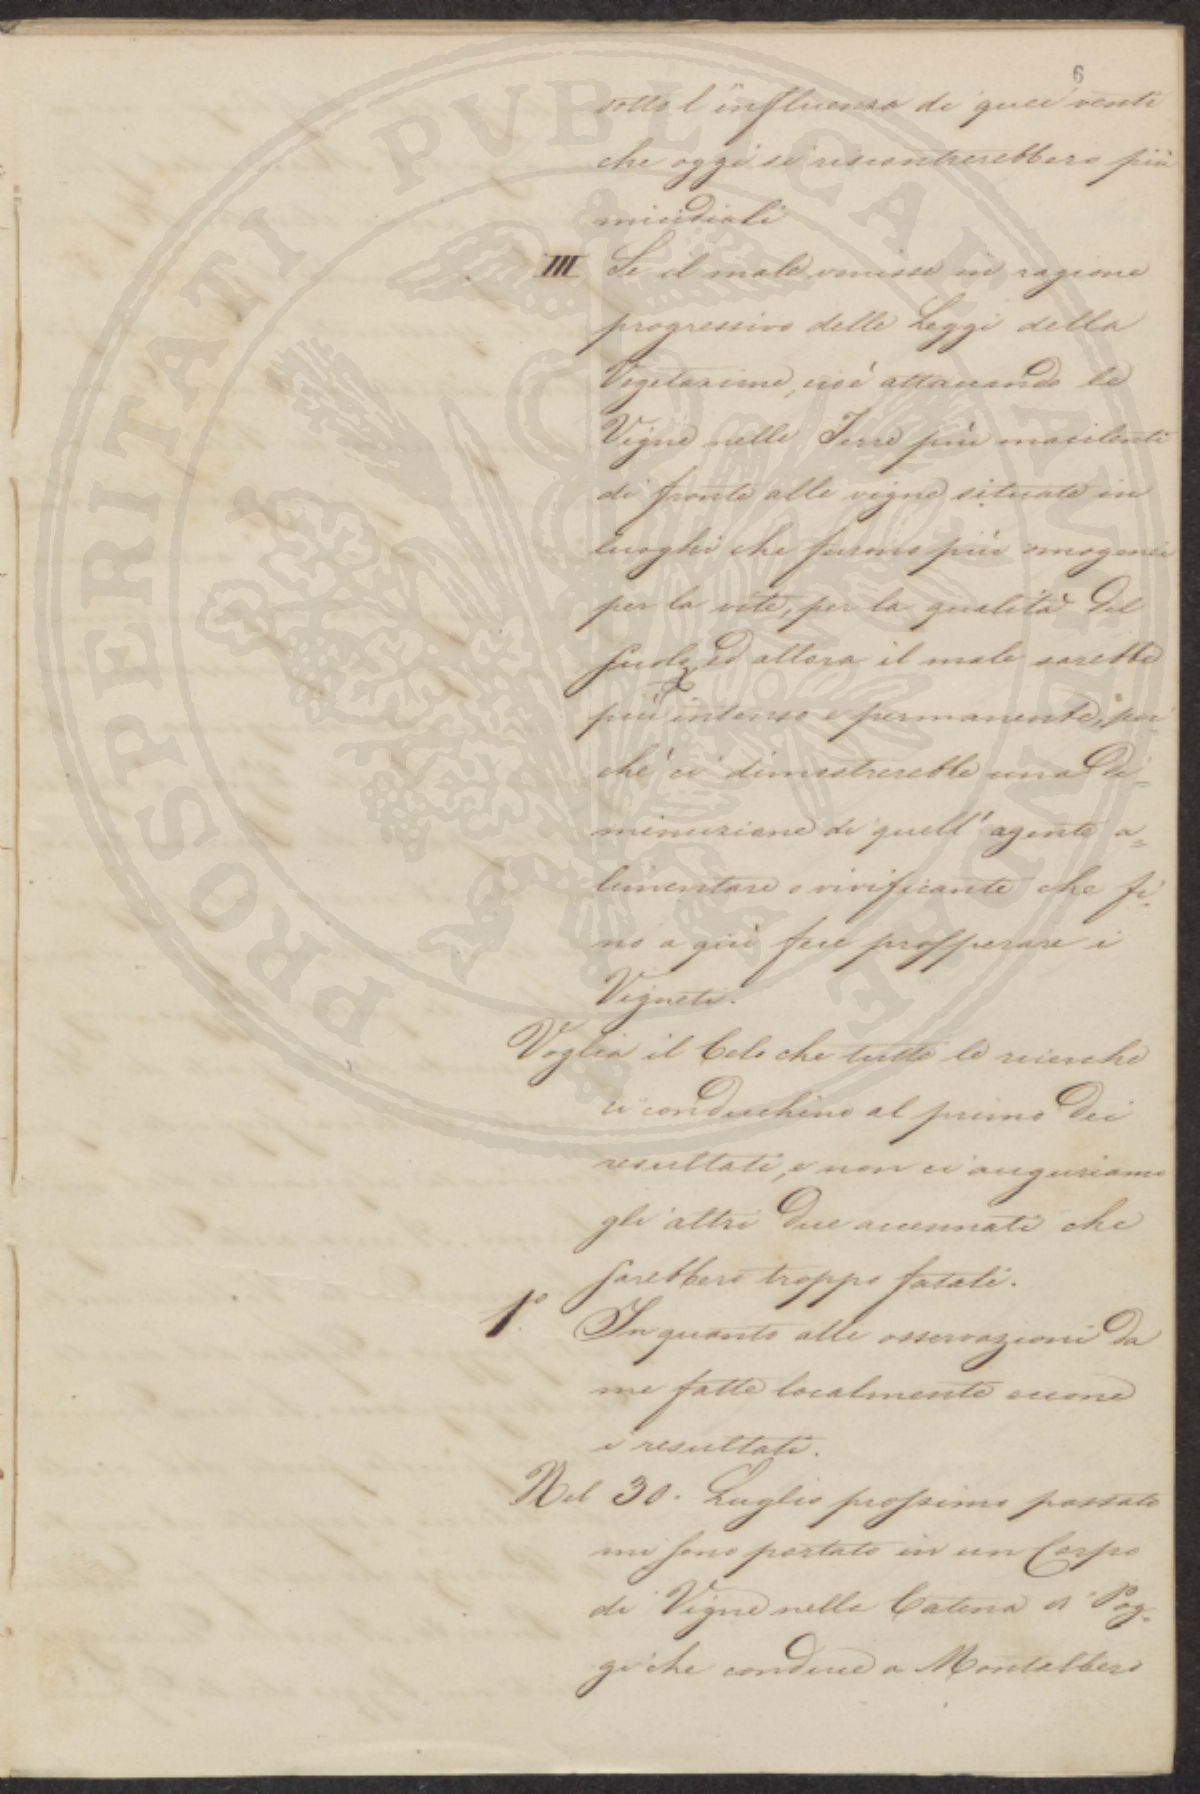 6
sotto l'influenza di quei venti
che oggi si riscontrerebbero più
micidiali
III Se il male venisse in ragione
progressivo delle Leggi della
Vegetazione, cioè attaccando le
Vigne nelle Terre più macilenti
di fronte alle vigne situate in
luoghi che furono più omogenei
per la vite, per la qualità del
suolo, ed allora il male sarebbe
più intenso e permanente, per
chè ci dimostrerebbe una di=
minuzione di quell'agente a=
limentare o vivificante che fi=
no a qui fece prosperare i
Vigneti.
Voglia il Celo che tutte le ricerche
ci conduchino al primo dei
resultati, e non ci auguriamo
gli altri due accennati che
sarebbero troppo fatali.
1° In quanto alle osservazioni da
me fatte localmente eccone
i resultati.
Nel 30. Luglio prossimo passato
mi sono portato in un Corpo
di Vigne nella Catena di Pog=
gi che conduce a Montalbero
PROSPERITATI PUBLICAE AUGENDAE